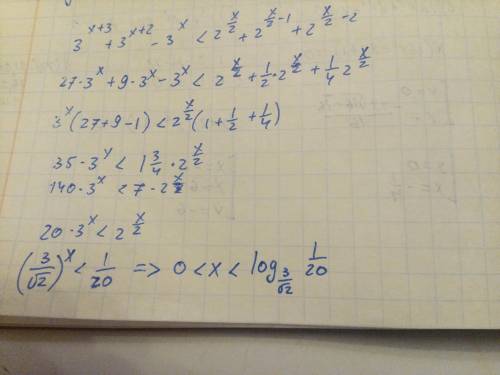 3^{x+3} + 3^{x+2} - 3^x < 2^{\frac{x}{2}} + 2^{\frac{x}{2}-1} + 2^{\frac{x}{2}-2}
27·3^x + 9·3^x - 3^x < 2^{\frac{x}{2}} + \frac{1}{2}·2^{\frac{x}{2}} + \frac{1}{4} 2^{\frac{x}{2}}
3^x (27+9-1) < 2^{\frac{x}{2}} (1 + \frac{1}{2} + \frac{1}{4})
35·3^x < 1\frac{3}{4} · 2^{\frac{x}{2}}
140·3^x < 7·2^{\frac{x}{2}}
20·3^x < 2^{\frac{x}{2}}
(\frac{3}{\sqrt{2}})^x < \frac{1}{20} => 0 < x < log_{\frac{3}{\sqrt{2}}} \frac{1}{20}